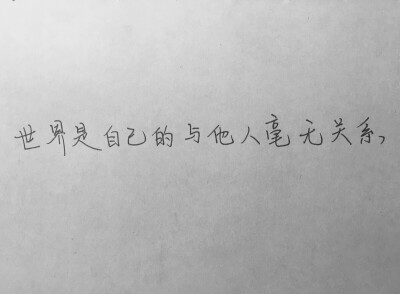 世界是自己的与他人毫无关系,